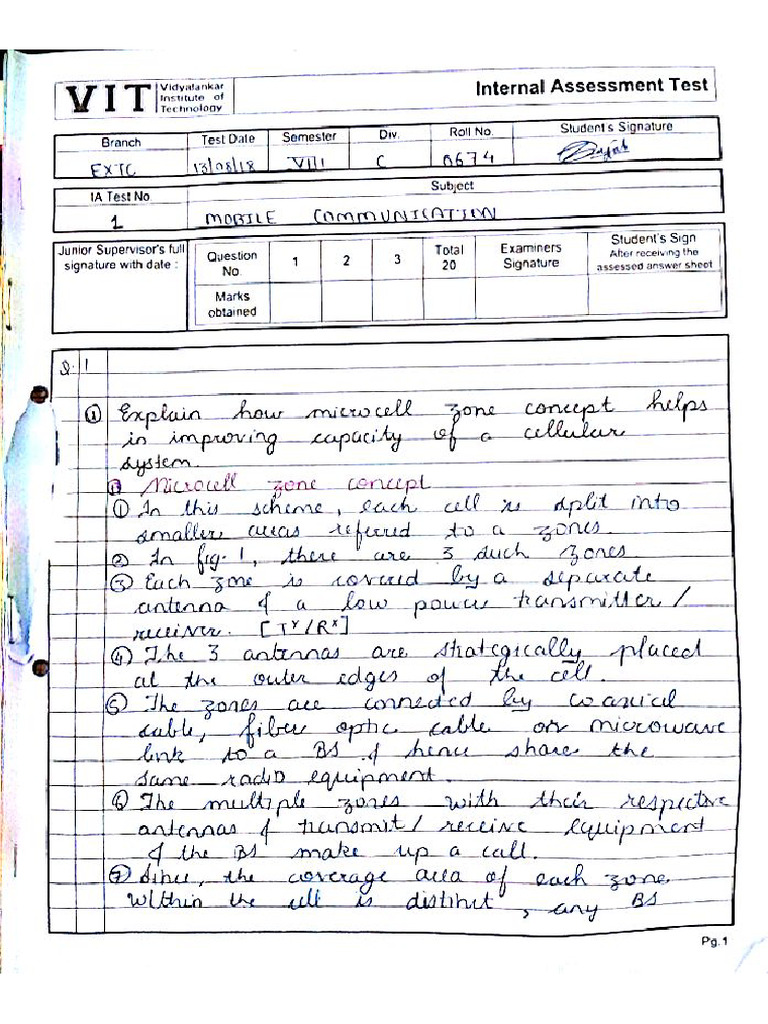 VIT Vidyalankar Institute of Technology
Internal Assessment Test
Branch Test Date Semester Div. Roll No. Student's Signature
EXTC 13/08/18 VIII C 0674
IA Test No. Subject
1 MOBILE COMMUNICATION
Junior Supervisor's full signature with date :
Question No. 1 2 3 Total 20 Examiners Signature Student's Sign After receiving the assessed answer sheet
Marks obtained
Q. 1
① Explain how microcell zone concept helps
in improving capacity of a cellular
system.
Microcell zone concept
① In this scheme, each cell is split into
smaller areas referred to a zones.
② In fig. 1, there are 3 such zones
③ Each zone is covered by a separate
antenna & a low power transmitter/
receiver. [Tx/Rx]
④ The 3 antennas are strategically placed
at the outer edges of the cell.
⑤ The zones are connected by coaxial
cable, fiber optic cable or microwave
link to a BS & hence share the
same radio equipment.
⑥ The multiple zones with their respective
antennas & transmit/ receive equipment
& the BS make up a cell.
⑦ Since, the coverage area of each zone
within the cell is distinct, any BS
Pg.1